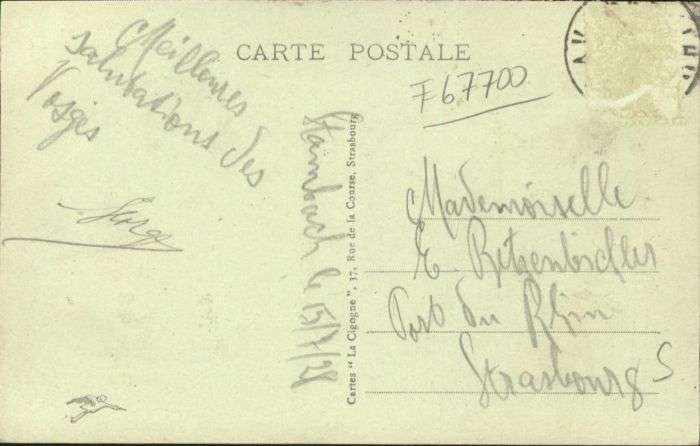 CARTE POSTALE
F67700
Meilleures
salutations des
Vosges
Serge
Stambach le 15/7/28
Cartes "La Cigogne", 37, Rue de la Course, Strasbourg
Mademoiselle
E.
Port du Rhin
Strasbourg